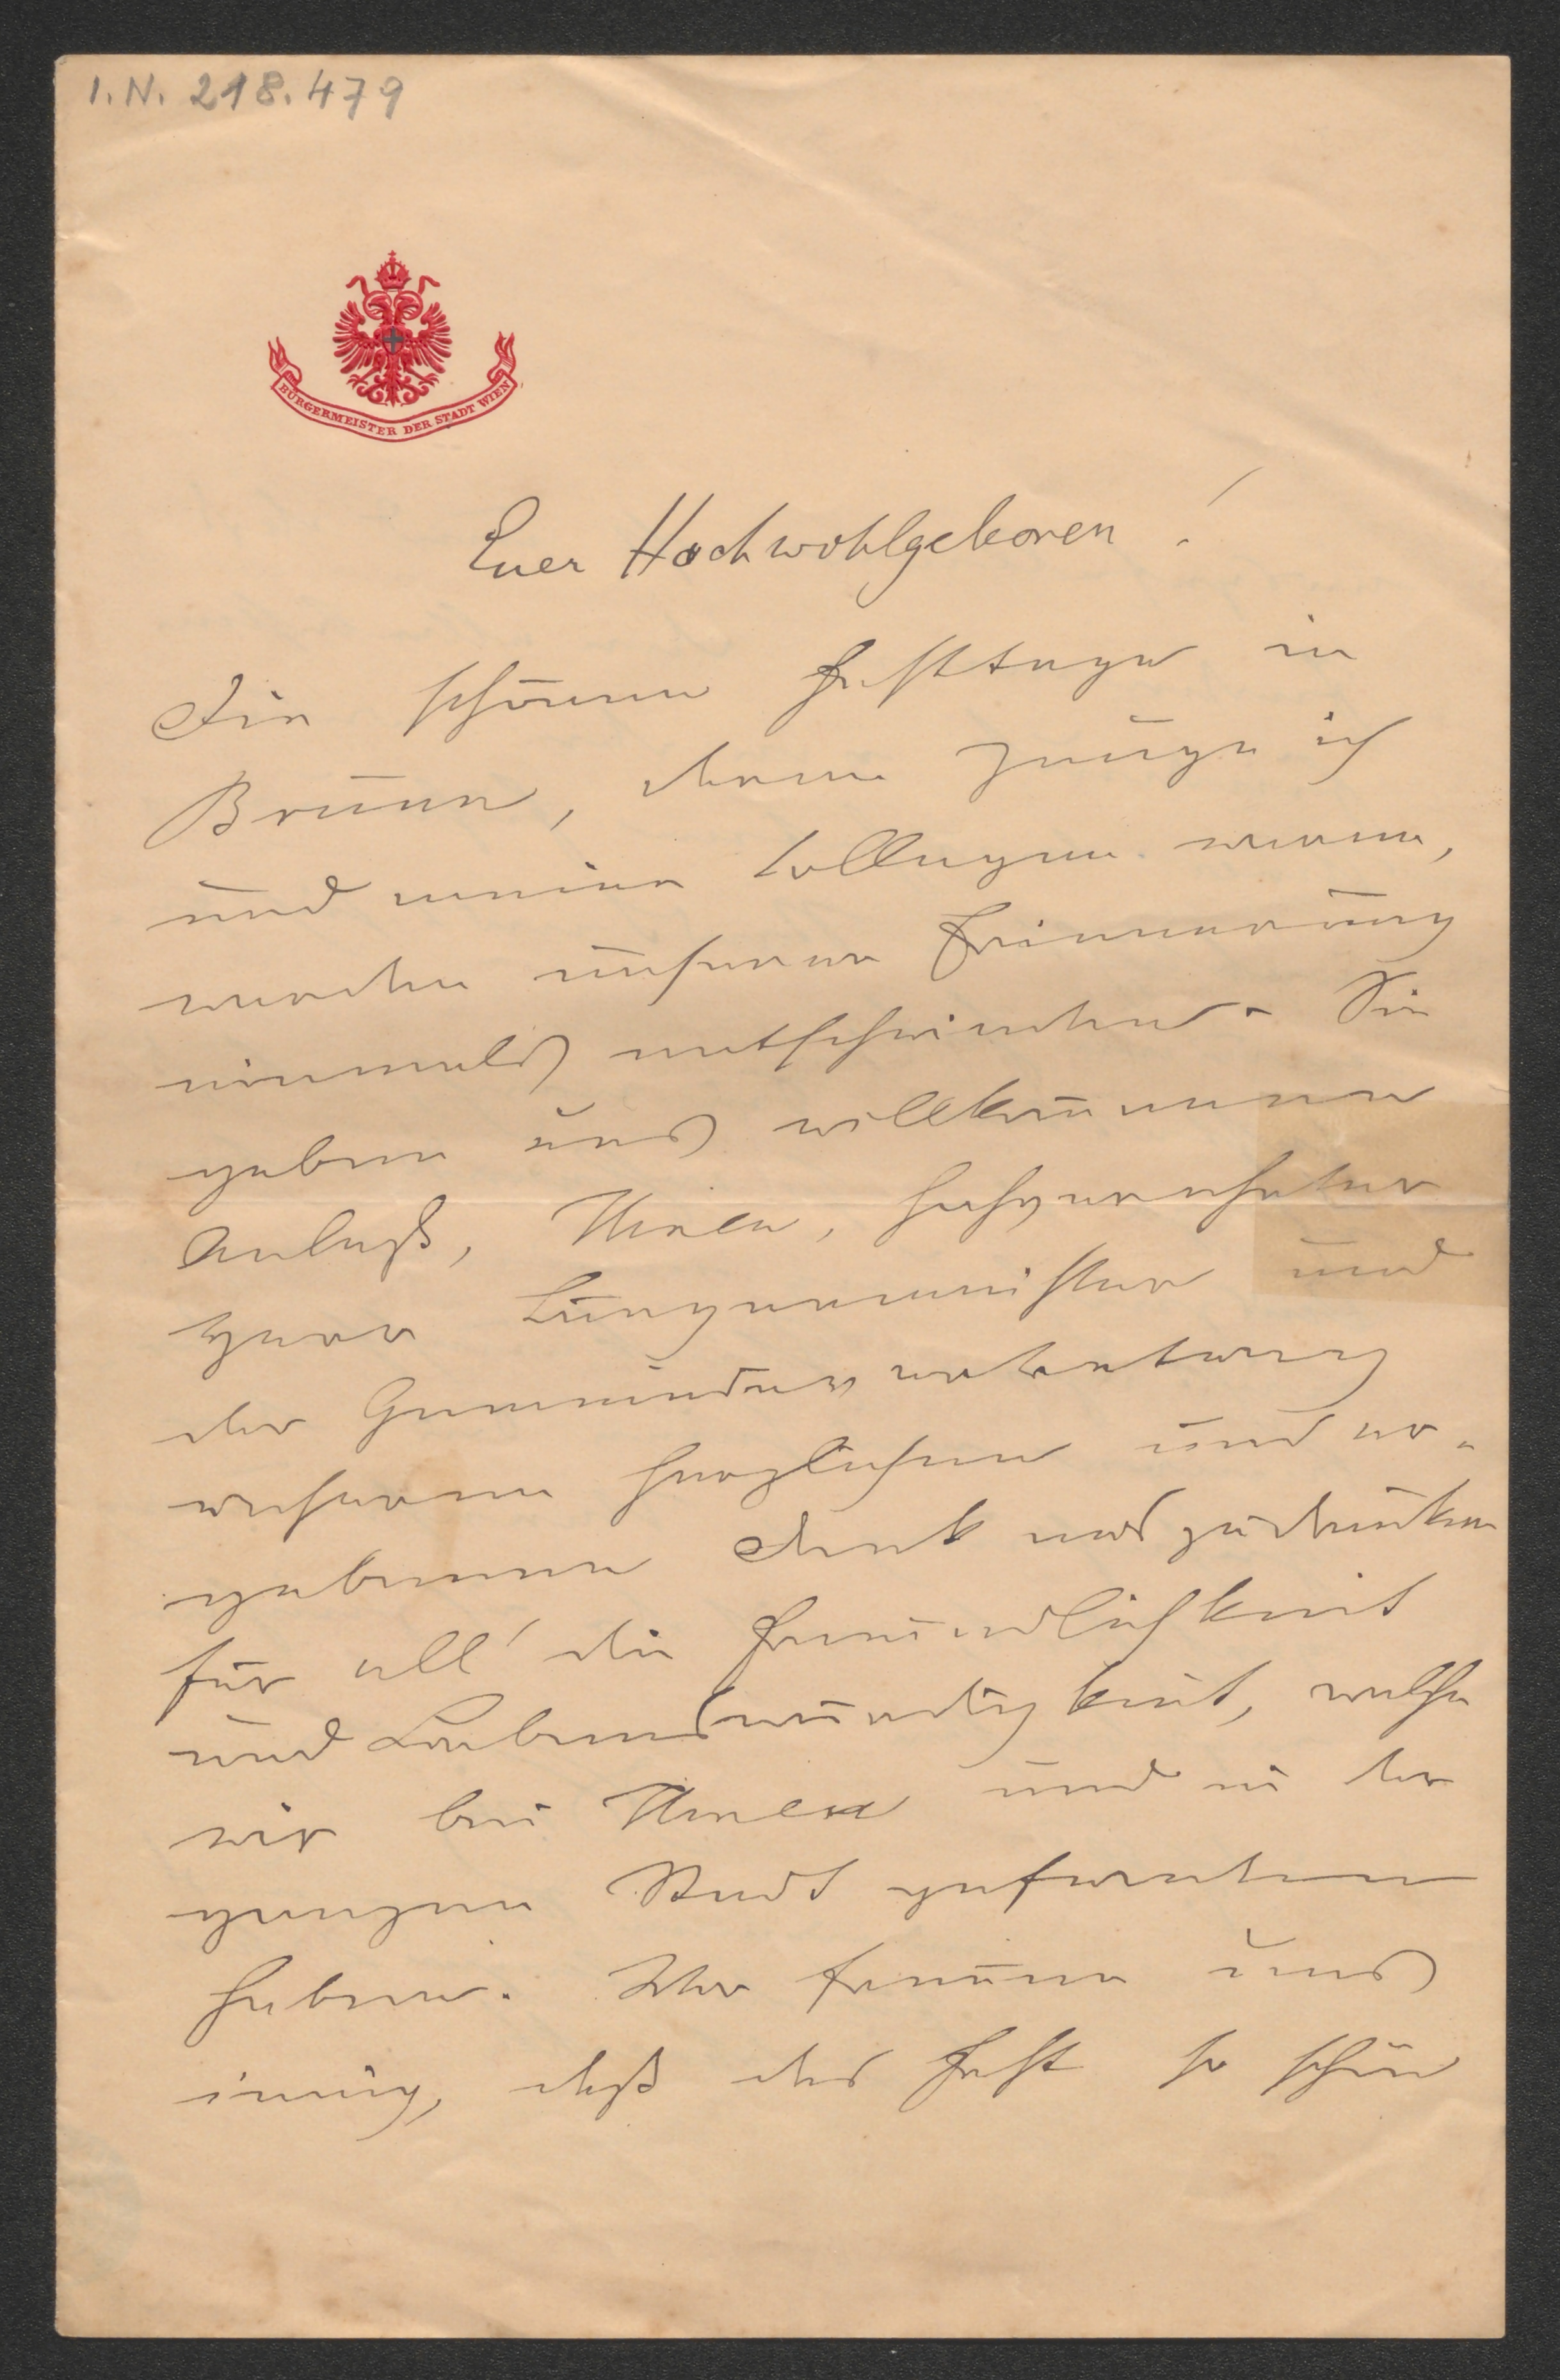 I.N. 218.479
BÜRGERMEISTER DER STADT WIEN
Euer Hochwohlgeboren!
Die schönen Festtage in
Brünn, deren Zeuge ich
und meine Collegen waren,
werden unserer Erinnerung
niemals entschwinden. Sie
geben uns willkommenen
Anlaß, Ihnen, hochgeehrter
Herr Bürgermeister und
der Gemeindevertretung
unseren herzlichen und er-
gebenen Dank auszudrücken
für all' die Freundlichkeit
und Liebenswürdigkeit, welche
wir bei Ihnen und in der
ganzen Stadt gefunden
haben. Wir freuen uns
innig, daß das Fest so schön